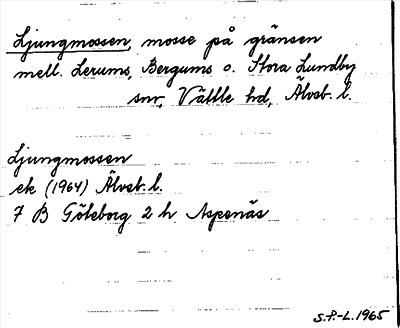 Ljungmossen, mosse på gränsen
mell. Lerums, Bergums o. Stora Lundby
snr, Vättle hd, Älvsb. l.
Ljungmossen
ek (1964) Älvsb. l.
7 B Göteborg 2 h Aspenäs
S.P.-L. 1965